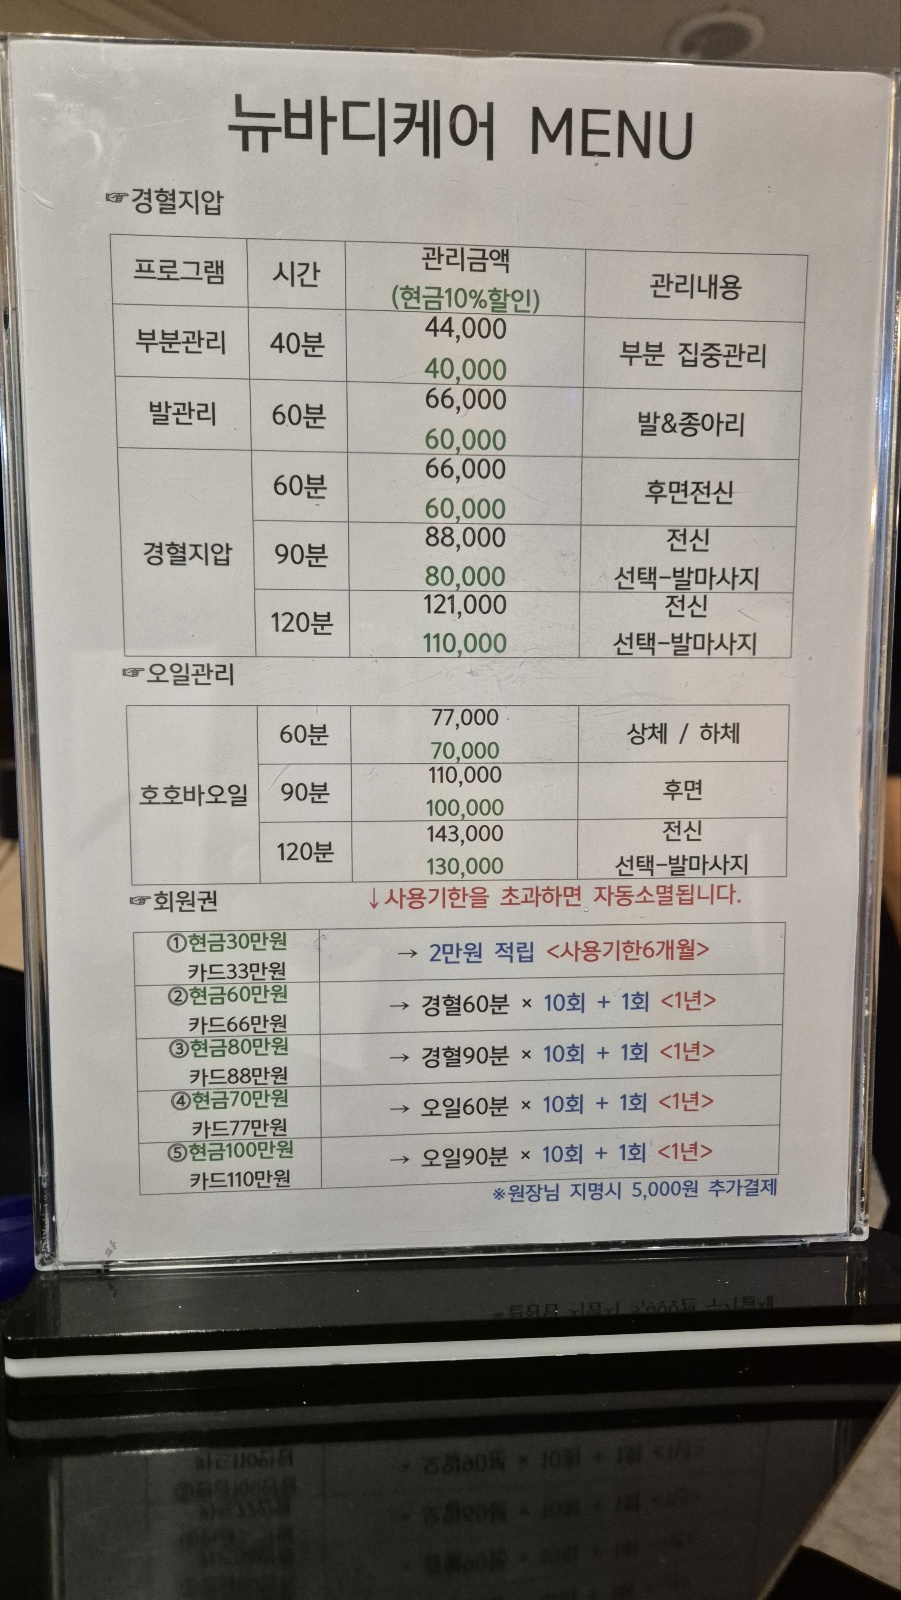 뉴바디케어 MENU
☞경혈지압
프로그램 시간 관리금액 관리내용
(현금10%할인)
부분관리 40분 44,000 부분 집중관리
40,000
발관리 60분 66,000 발&종아리
60,000
경혈지압 60분 66,000 후면전신
60,000
90분 88,000 전신
80,000 선택-발마사지
120분 121,000 전신
110,000 선택-발마사지
☞오일관리
호호바오일 60분 77,000 상체 / 하체
70,000
90분 110,000 후면
100,000
120분 143,000 전신
130,000 선택-발마사지
☞회원권 ↓사용기한을 초과하면 자동소멸됩니다.
①현금30만원 → 2만원 적립 <사용기한6개월>
카드33만원
②현금60만원 → 경혈60분 × 10회 + 1회 <1년>
카드66만원
③현금80만원 → 경혈90분 × 10회 + 1회 <1년>
카드88만원
④현금70만원 → 오일60분 × 10회 + 1회 <1년>
카드77만원
⑤현금100만원 → 오일90분 × 10회 + 1회 <1년>
카드110만원
※원장님 지명시 5,000원 추가결제